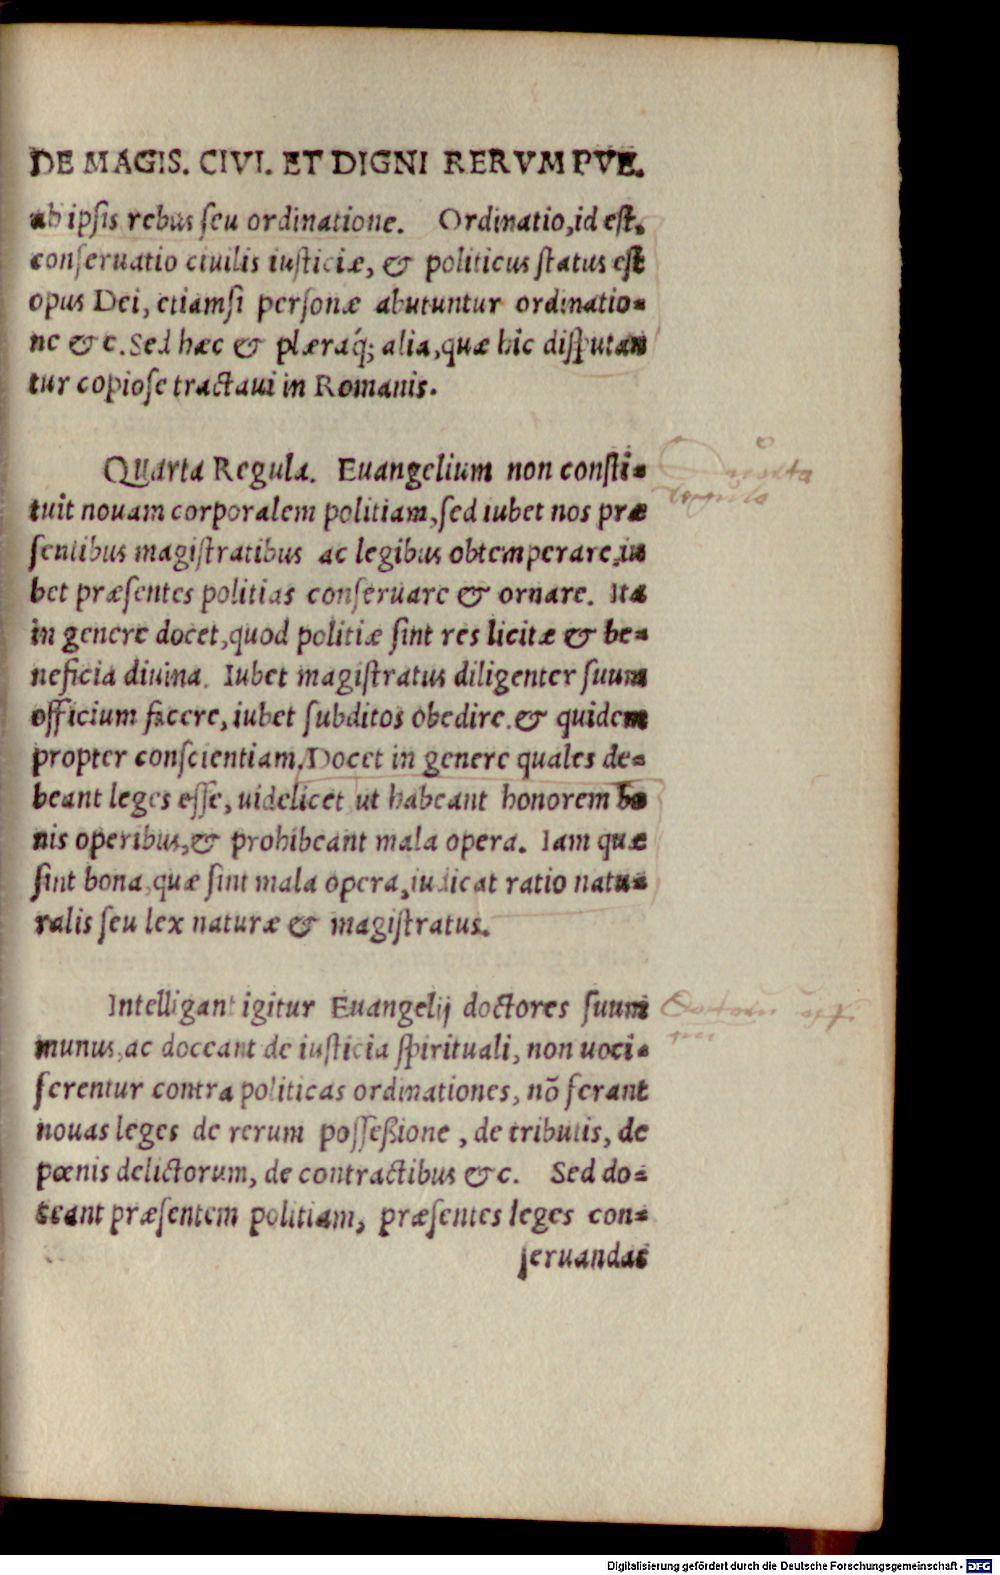 DE MAGIS. CIVI. ET DIGNI RERVM PVB.
ab ipsis rebus seu ordinatione. Ordinatio, id est,
conseruatio ciuilis iusticiæ, & politicus status est
opus Dei, etiamsi personæ abutuntur ordinatio=
ne &c. Sed hæc & plæraq́; alia, quæ hic disputan
tur copiose tractaui in Romanis.
Quarta Regula. Euangelium non consti=
tuit nouam corporalem politiam, sed iubet nos præ
sentibus magistratibus ac legibus obtemperare, iu
bet præsentes politias conseruare & ornare. Ita
in genere docet, quod politiæ sint res licitæ & be=
neficia diuina. Iubet magistratus diligenter suum
officium facere, iubet subditos obedire. & quidem
propter conscientiam. Docet in genere quales de=
beant leges esse, uidelicet ut habeant honorem bo
nis operibus, & prohibeant mala opera. Iam quæ
sint bona, quæ sint mala opera, iudicat ratio natu=
ralis seu lex naturæ & magistratus.
Intelligant igitur Euangelij doctores suum
munus, ac doceant de iusticia spirituali, non uoci=
ferentur contra politicas ordinationes, nō ferant
nouas leges de rerum posseßione, de tributis, de
pœnis delictorum, de contractibus &c. Sed do=
ceant præsentem politiam, præsentes leges con=
seruandas
Quarta
regula
Digitalisierung gefördert durch die Deutsche Forschungsgemeinschaft - DFG